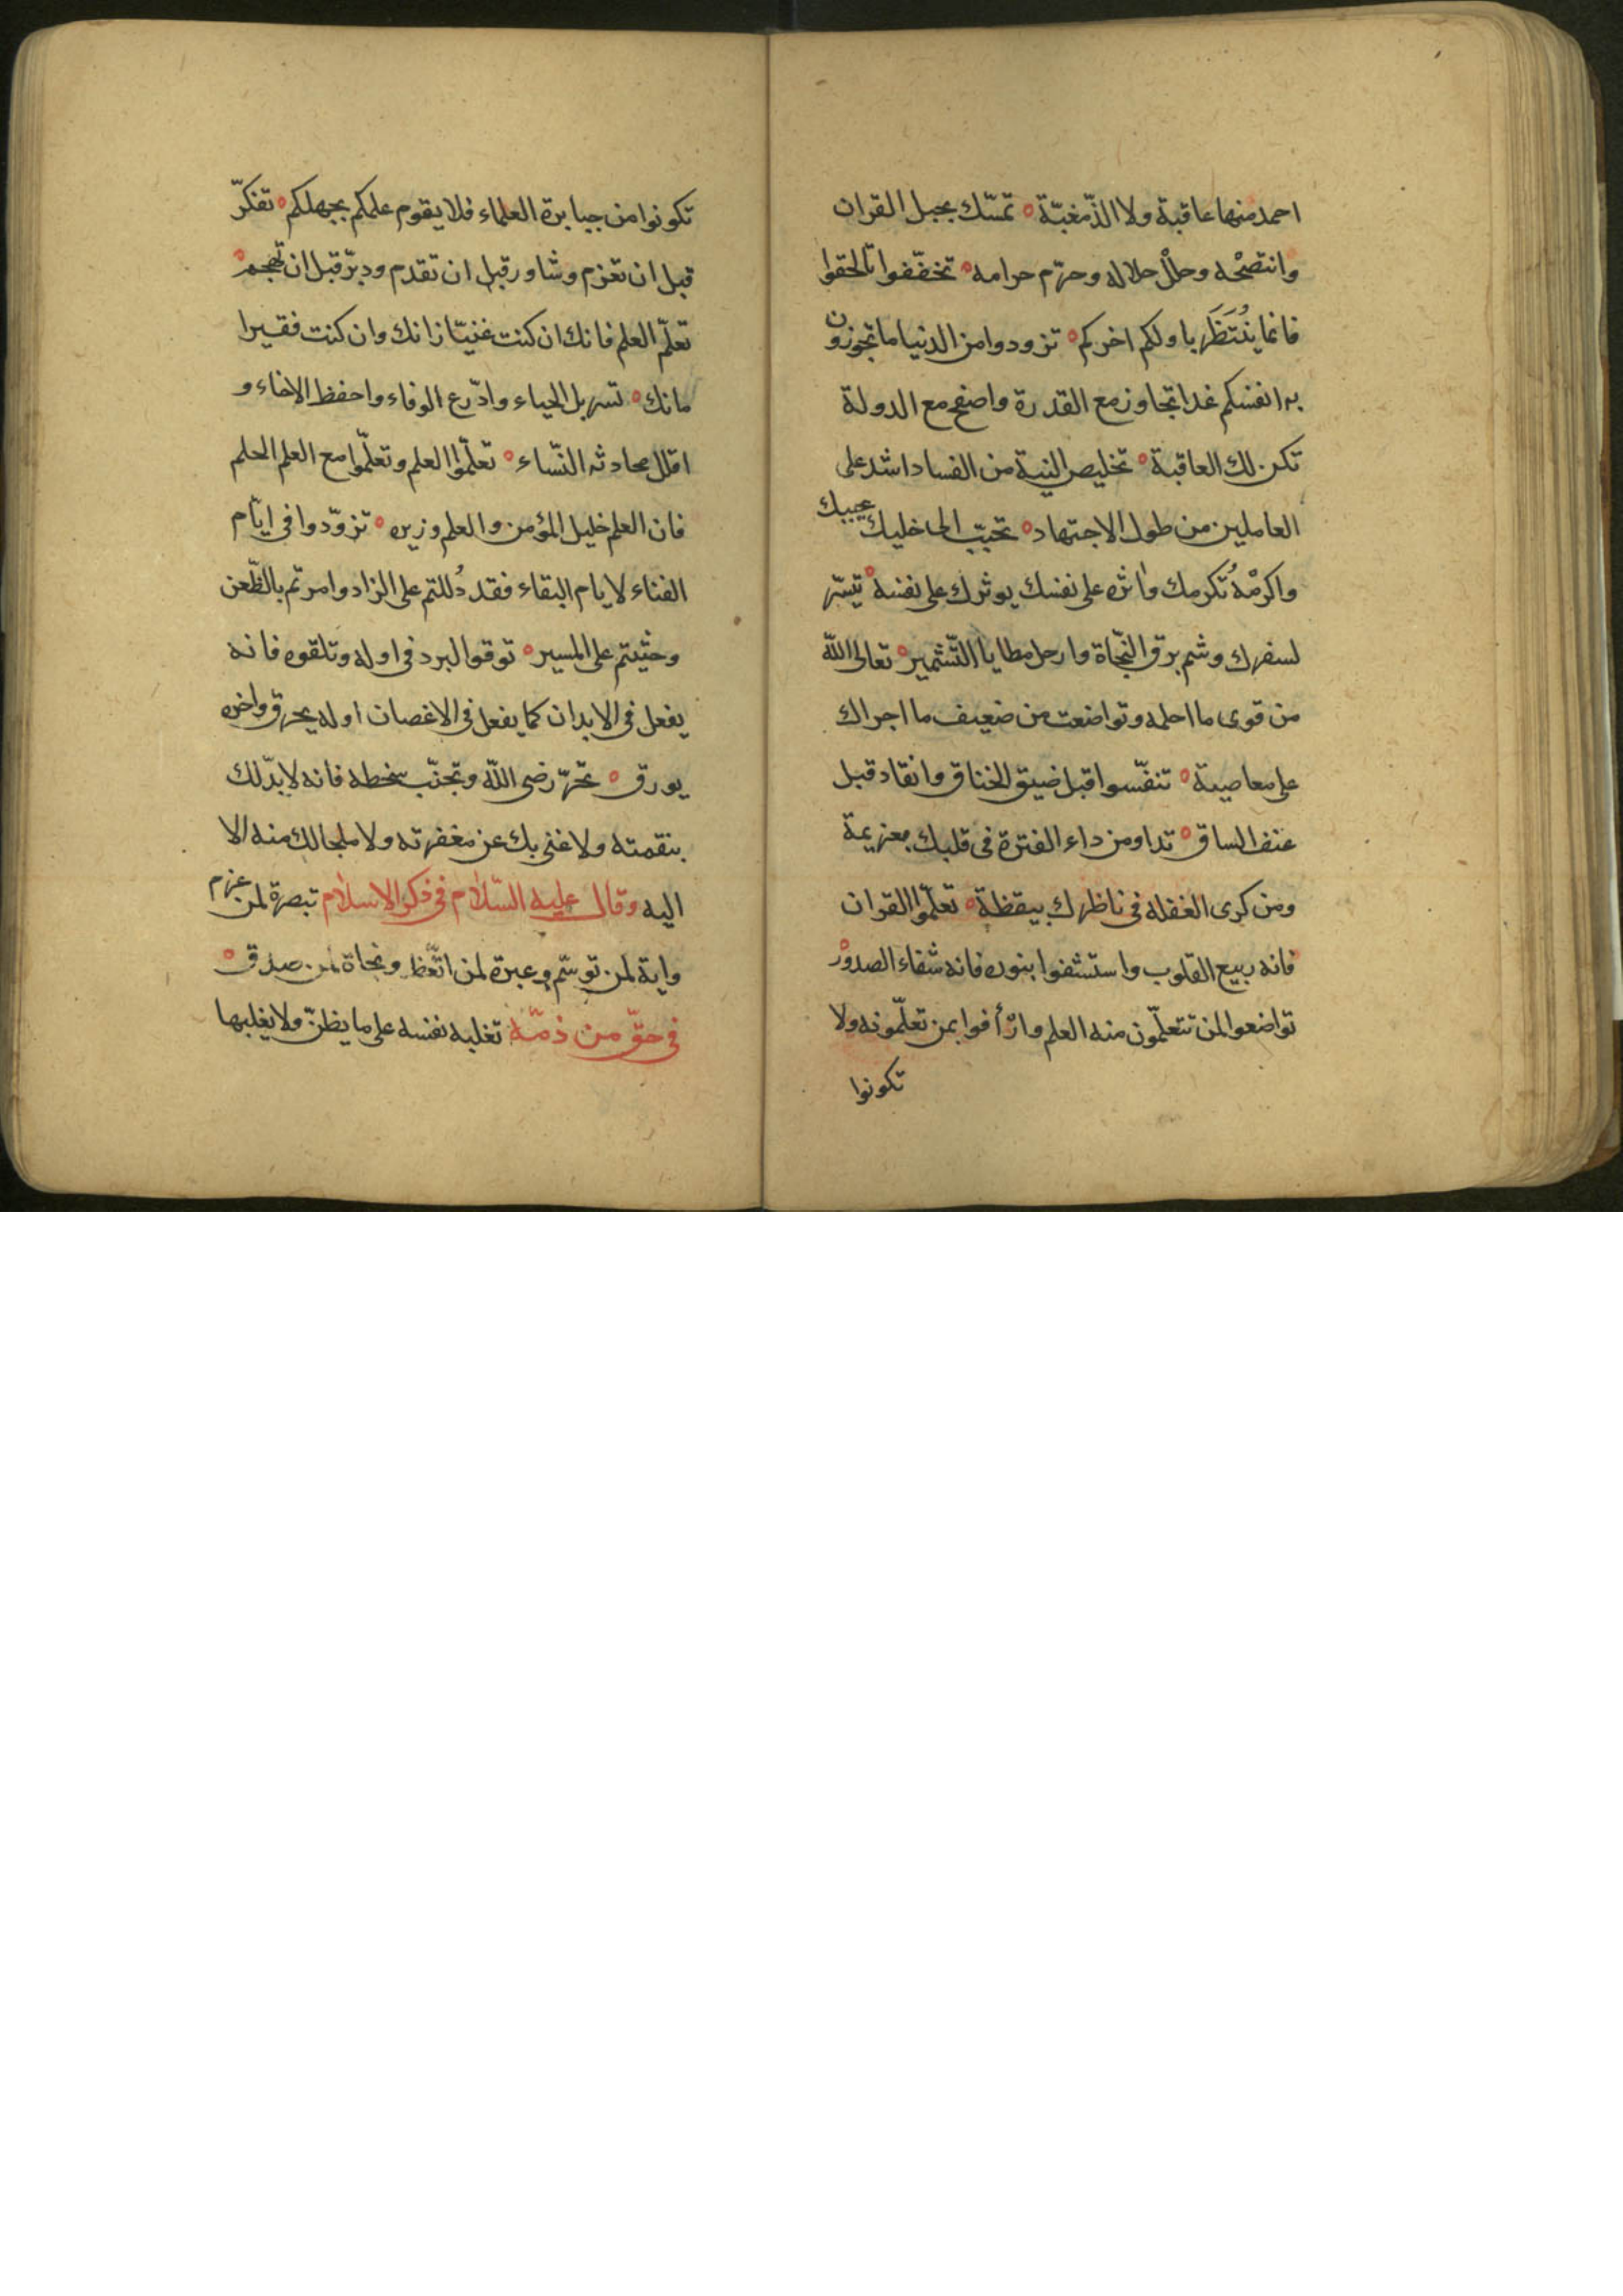 احمد منها عاقبة ولا الذّ مغبّة ه تمسّك بحبل القران
وانتصحْه وحلّل حلاله وحرّم حرامه ه تخفّفوا تلحقوا
فانما يُنْتَظَر باولكم اخركم ه تزودوا من الدنيا ما تحوزون
به انفسكم غدا تجاوز مع القدرة واصفح مع الدولة
تكن لك العاقبة ه تخليص النية من الفساد اشد على
العاملين من طول الاجتهاد ه تحبّب الى خليلك يحببك
واكرمْهُ تكرمك واثره على نفسك يوثرك على نفسه ه تيسّر
لسفرك وشم برق النّجاة وارحل مطايا التّشمير ه تعالى اللّه
من قوى ما احلمه وتواضعت من ضعيف ما اجراك
على معاصيه ه تنفّسوا قبل ضيق الخناق وانقاد قبل
عنف الساق ه تداو من داء الفترة فى قلبك بعزيمة
ومن كرى الغفله فى ناظرك بيقظة ه تعلّموا القران
فانه ربيع القلوب واستشفوا بنوره فانه شفاء الصدور ه
تواضعوا لمن تتعلّمون منه العلم وارْأفوا بمن تعلّمونه ولا
تكونوا
تكونوا من جبابرة العلماء فلا يقوم علمكم بجهلكم ه تفكّر
قبل ان تعزم وشاور قبل ان تقدم ودبّر قبل ان تهجم ه
تعلّم العلم فانك ان كنت غنيّا زانك وان كنت فقيرا
مانك ه تسربل الحياء وادّرع الوفاء واحفظ الاخاء و
اقلل محادثه النّساء ه تعلّموا العلم وتعلّموا مع العلم الحلم
فان العلم خليل المؤمن والعلم وزيره ه تزوّدوا فى ايّام
الفناء لايام البقاء فقد دُللتم على الزاد وامرتم بالظّعن
وحثّيتم على المسير ه توقوا البرد فى اوله وتلقوه فانه
يفعل فى الابدان كما يفعل فى الاغصان اوله يحرق واخره
يورق ه تحرّ رضى اللّه وتجنّب سخطه فانه لا بدّ لك
بنقمته ولا غنى بك عن مغفرته ولا ملجا لك منه الا
اليه وقال عليه السّلام فى ذكر الاسلام تبصرة لمن عزم
واية لمن توسّم وعبرة لمن اتّعظ ونجاة لمن صدق ه
فى حقّ من ذمّه تغلبه نفسه على ما يظنّ ولا يغلبها